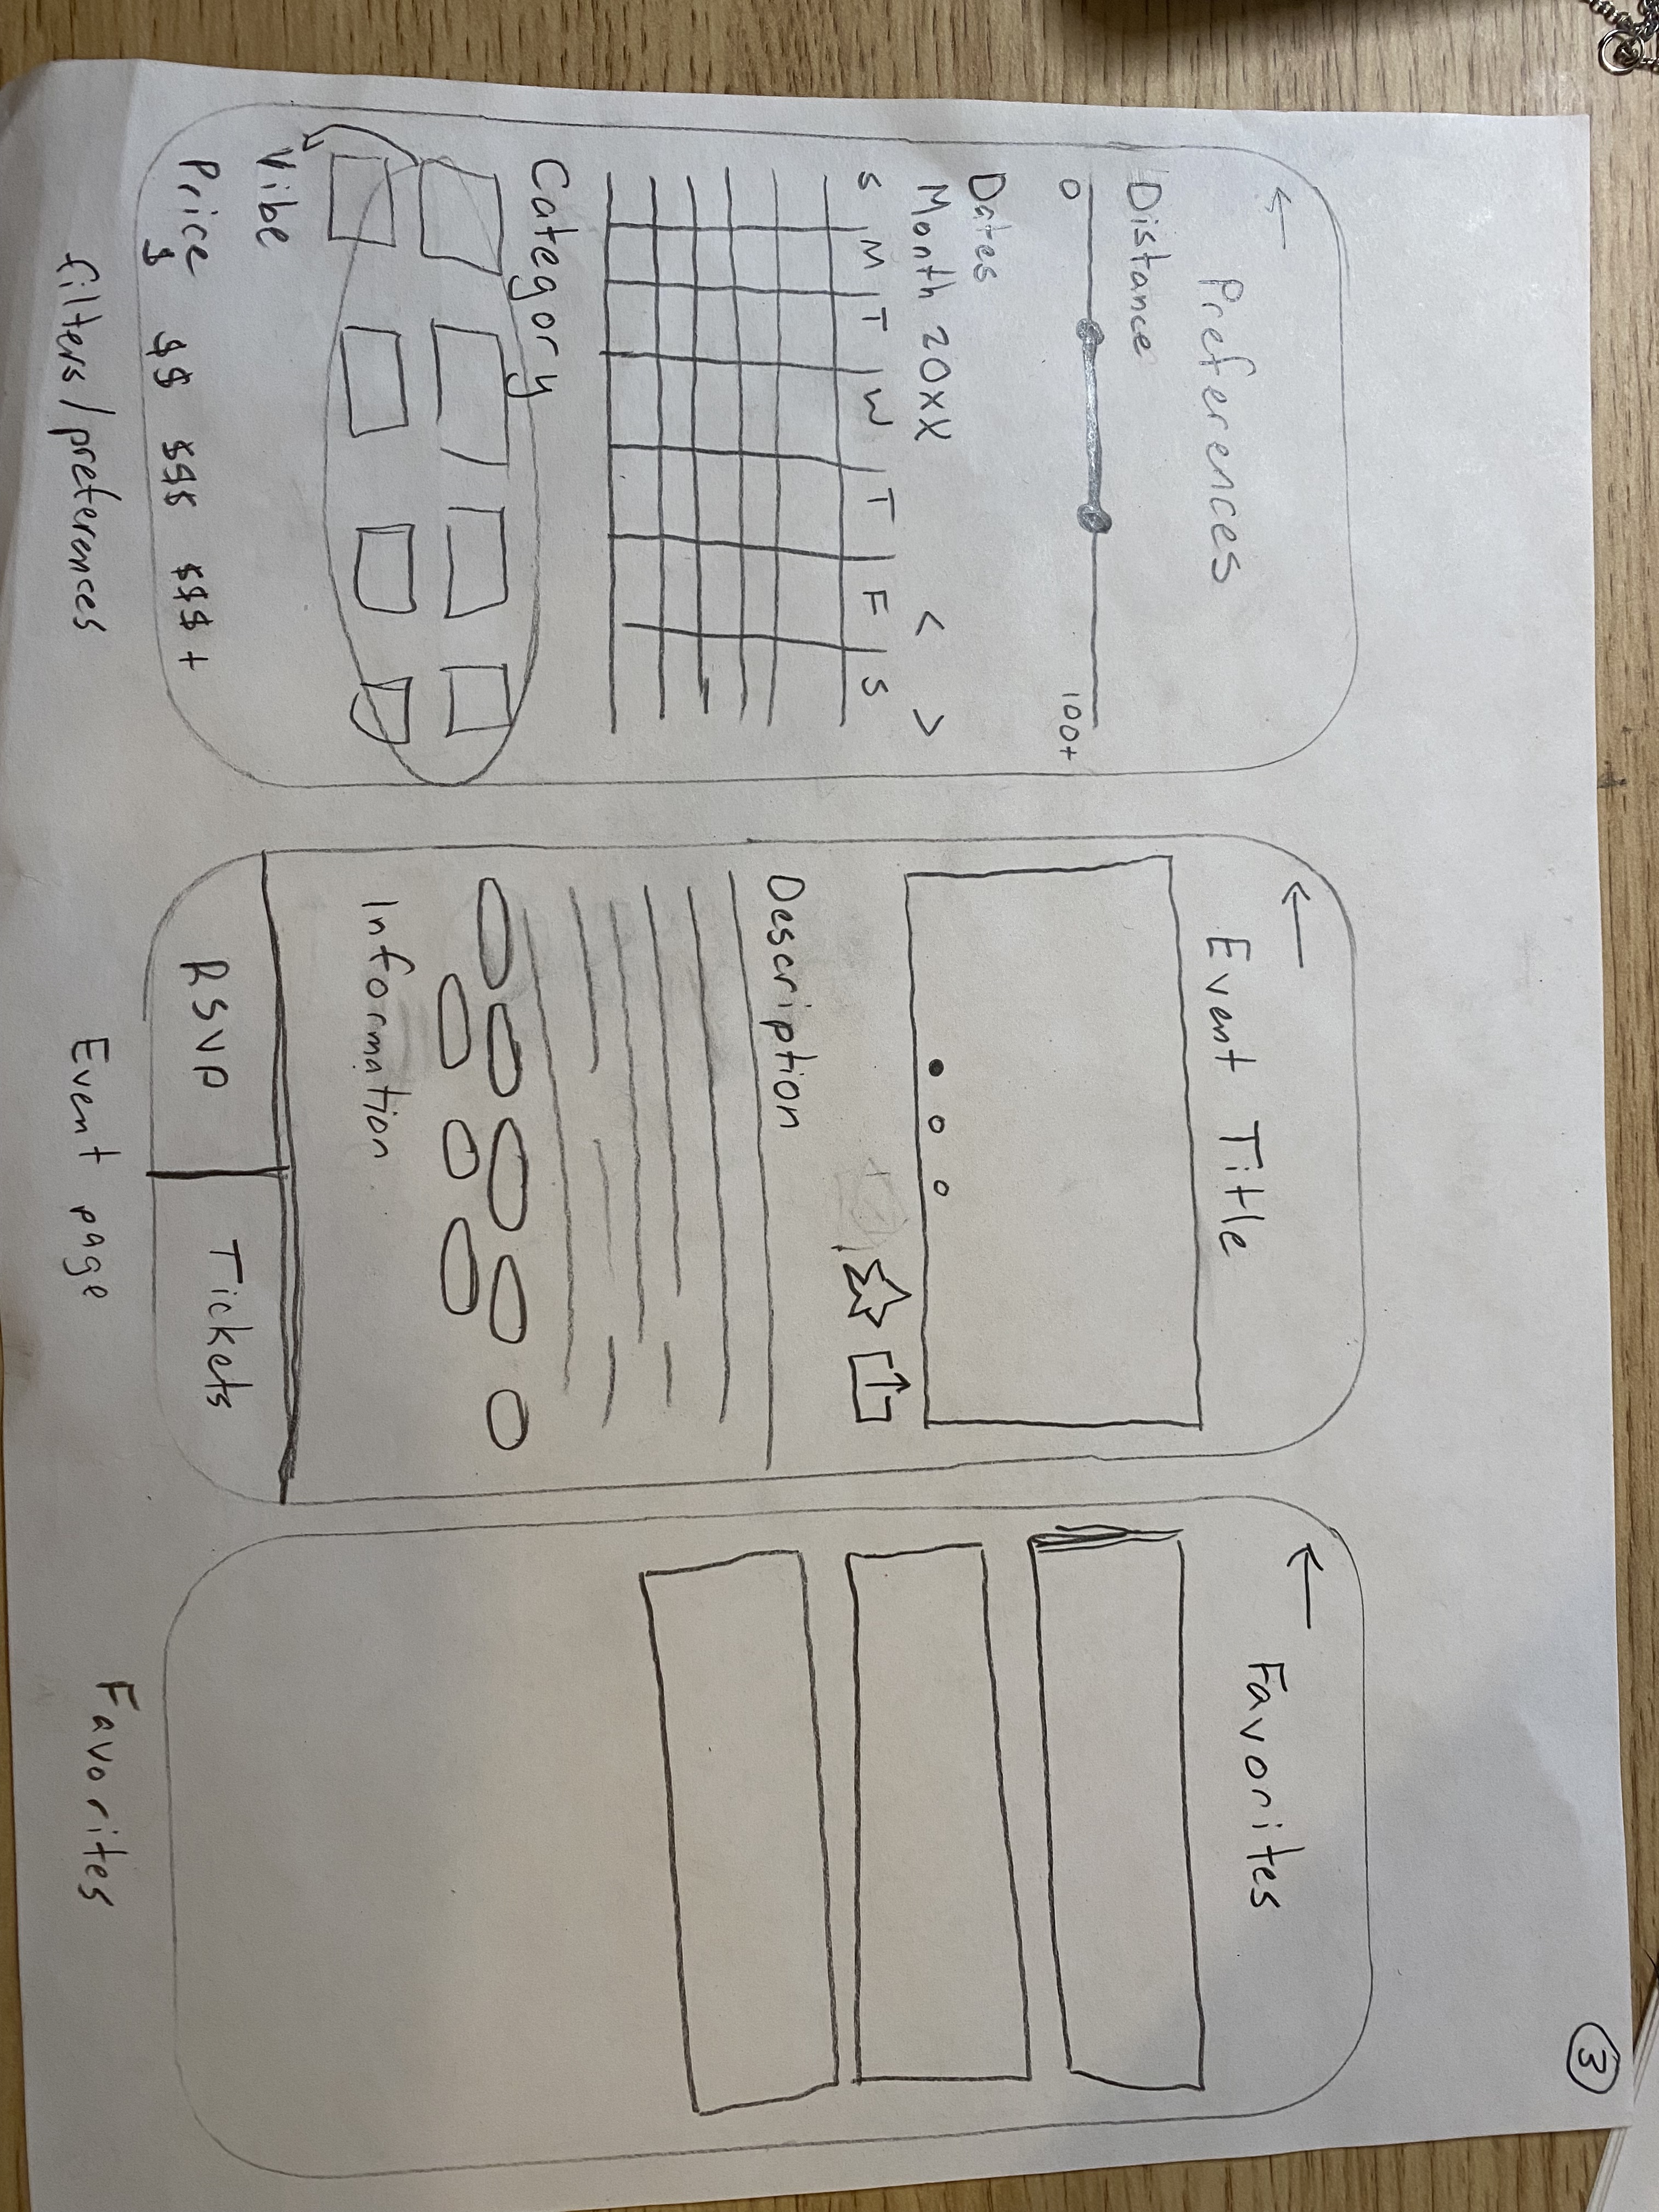 3
←
Preferences
Distance
0 100+
Dates
Month 20XX < >
S M T W T F S
Category
Vibe
Price
$ $$ $$$ $$$+
filters/preferences
←
Event Title
Description
Information
RSVP Tickets
Event page
←
Favorites
Favorites